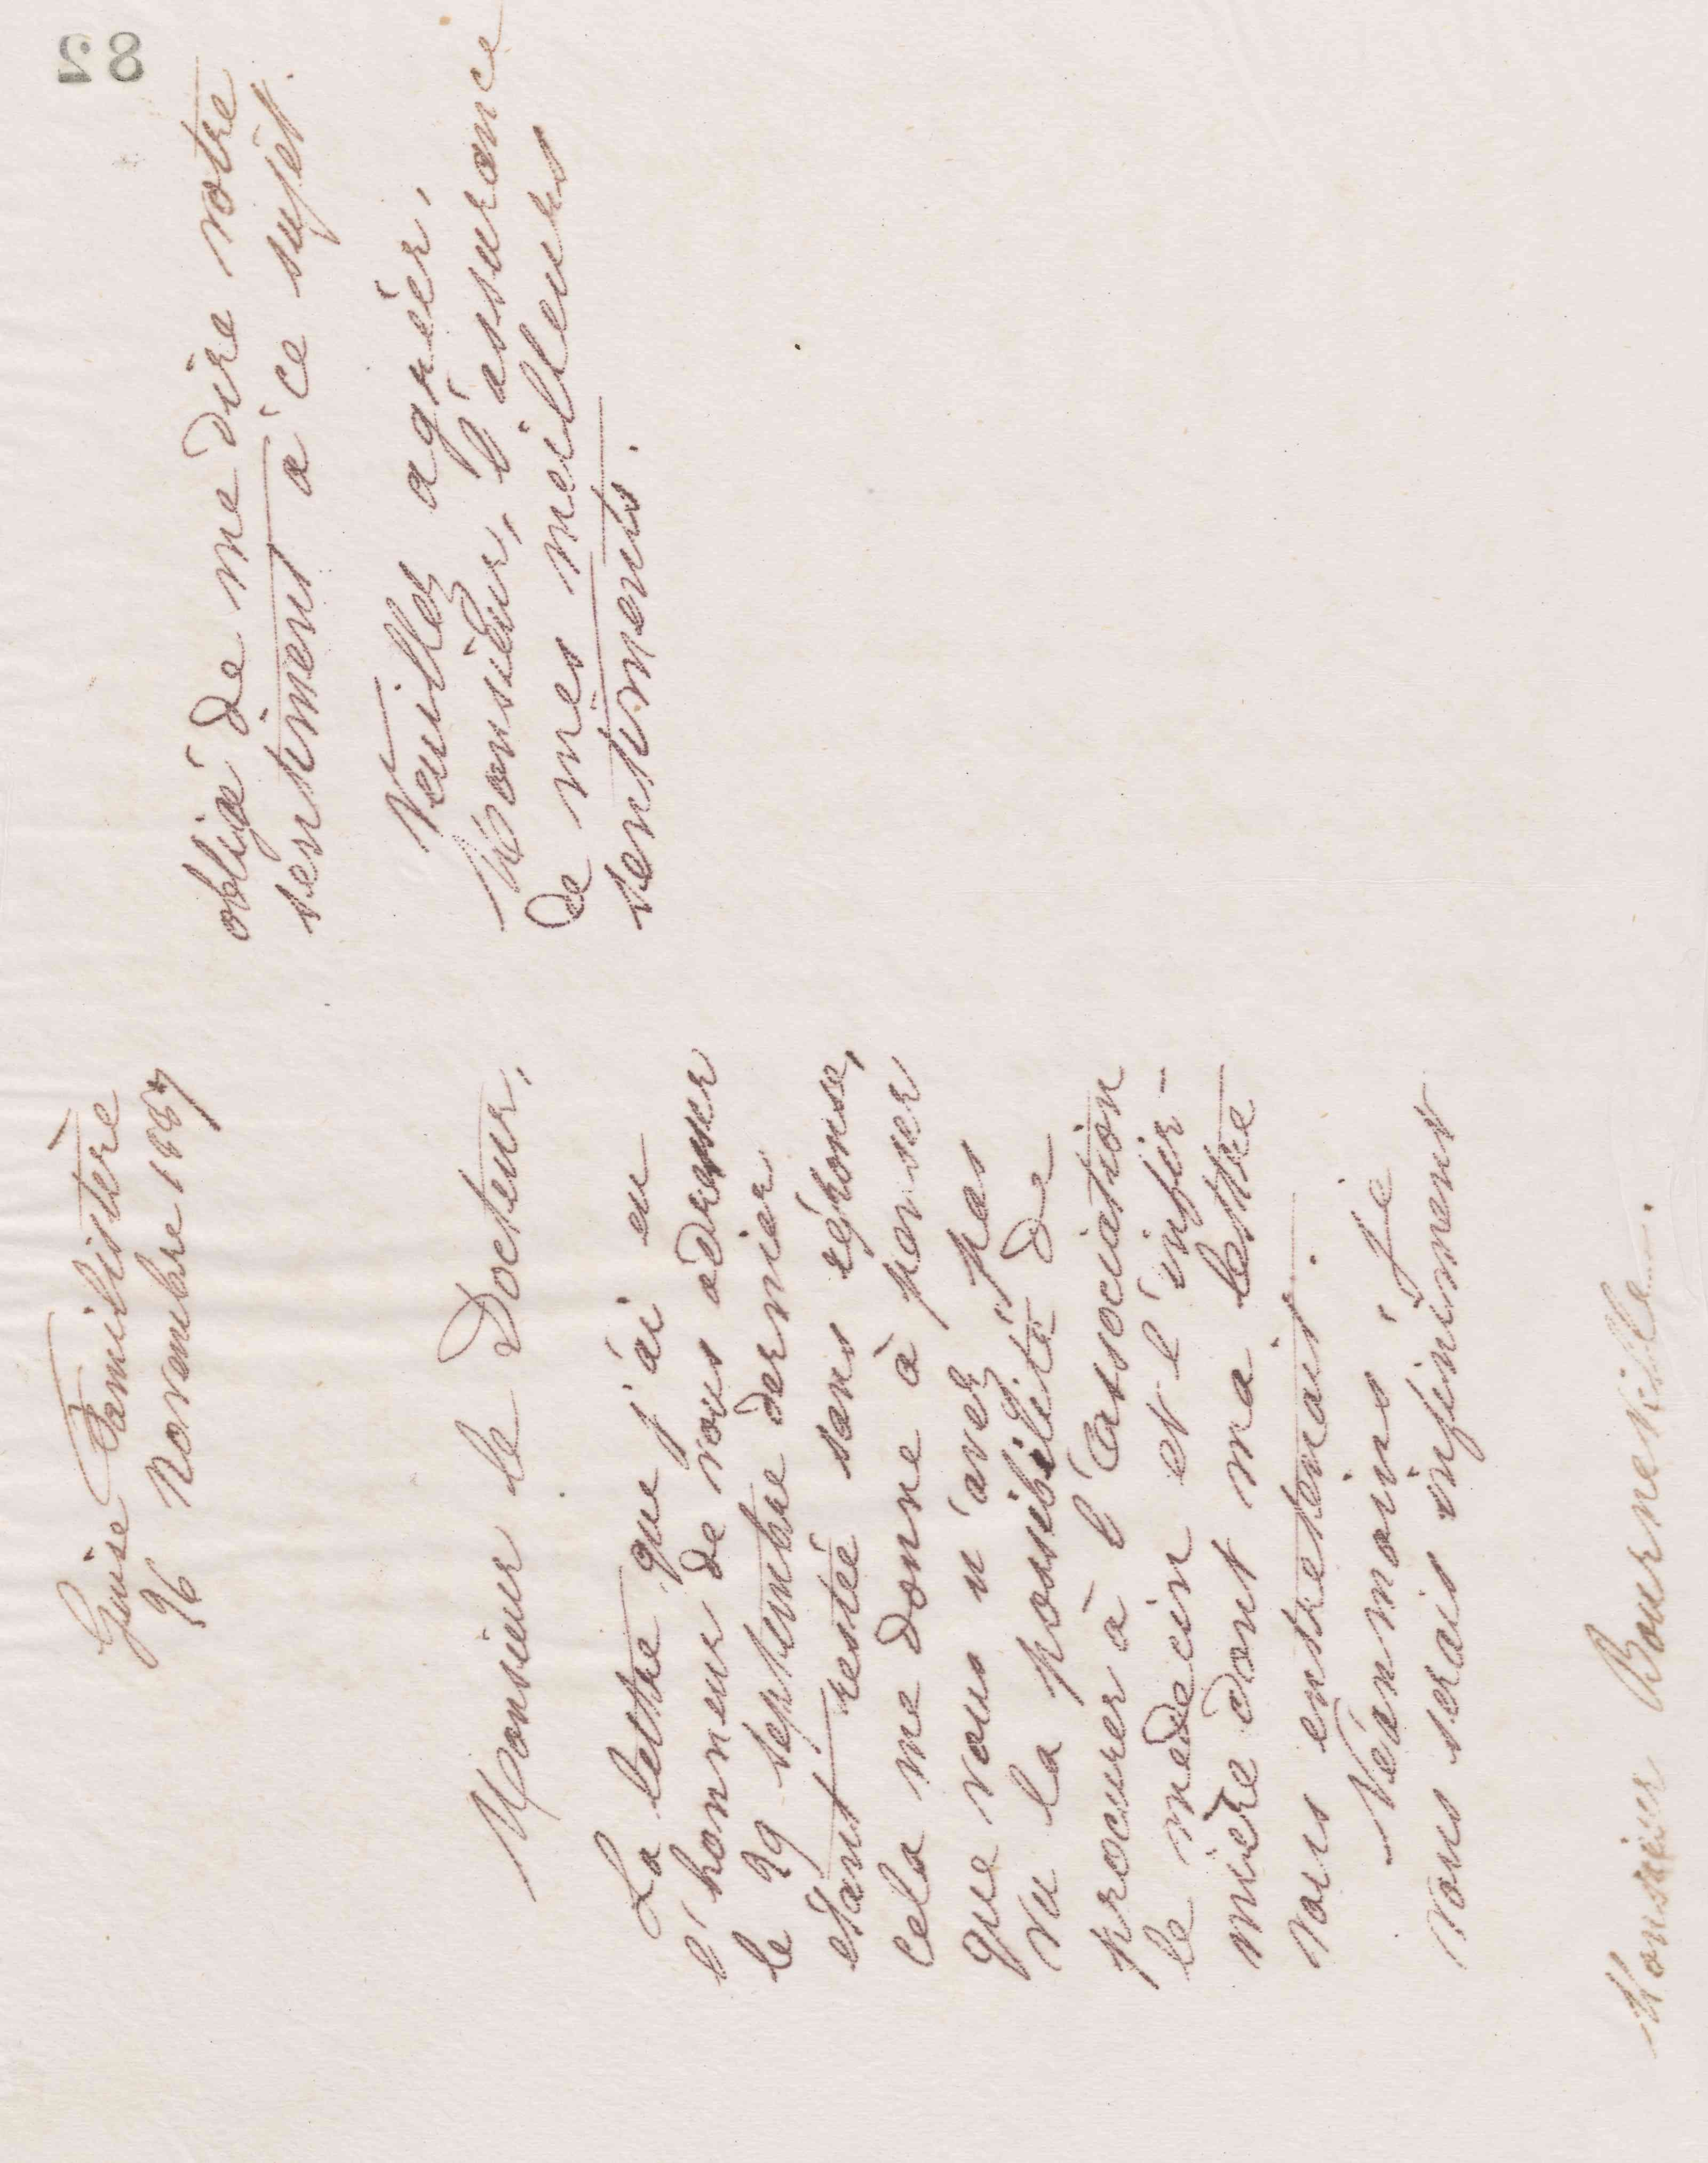 82
Guise Familistère
26 Novembre 1887
Monsieur le Docteur,
La lettre que j'ai eu
l'honneur de vous adresser
le 29 septembre dernier
étant restée sans réponse,
cela me donne à penser
que vous n'avez pas
vu la possibilité de
procurer à l'association
le médecin et l'infir-
mière dont ma lettre
vous entretenait.
Néanmoins je
vous serais infiniment
Monsieur Bourneville
obligé de me dire votre
sentiment à ce sujet.
Veuillez agréer,
Monsieur, l'assurance
de mes meilleurs
sentiments.